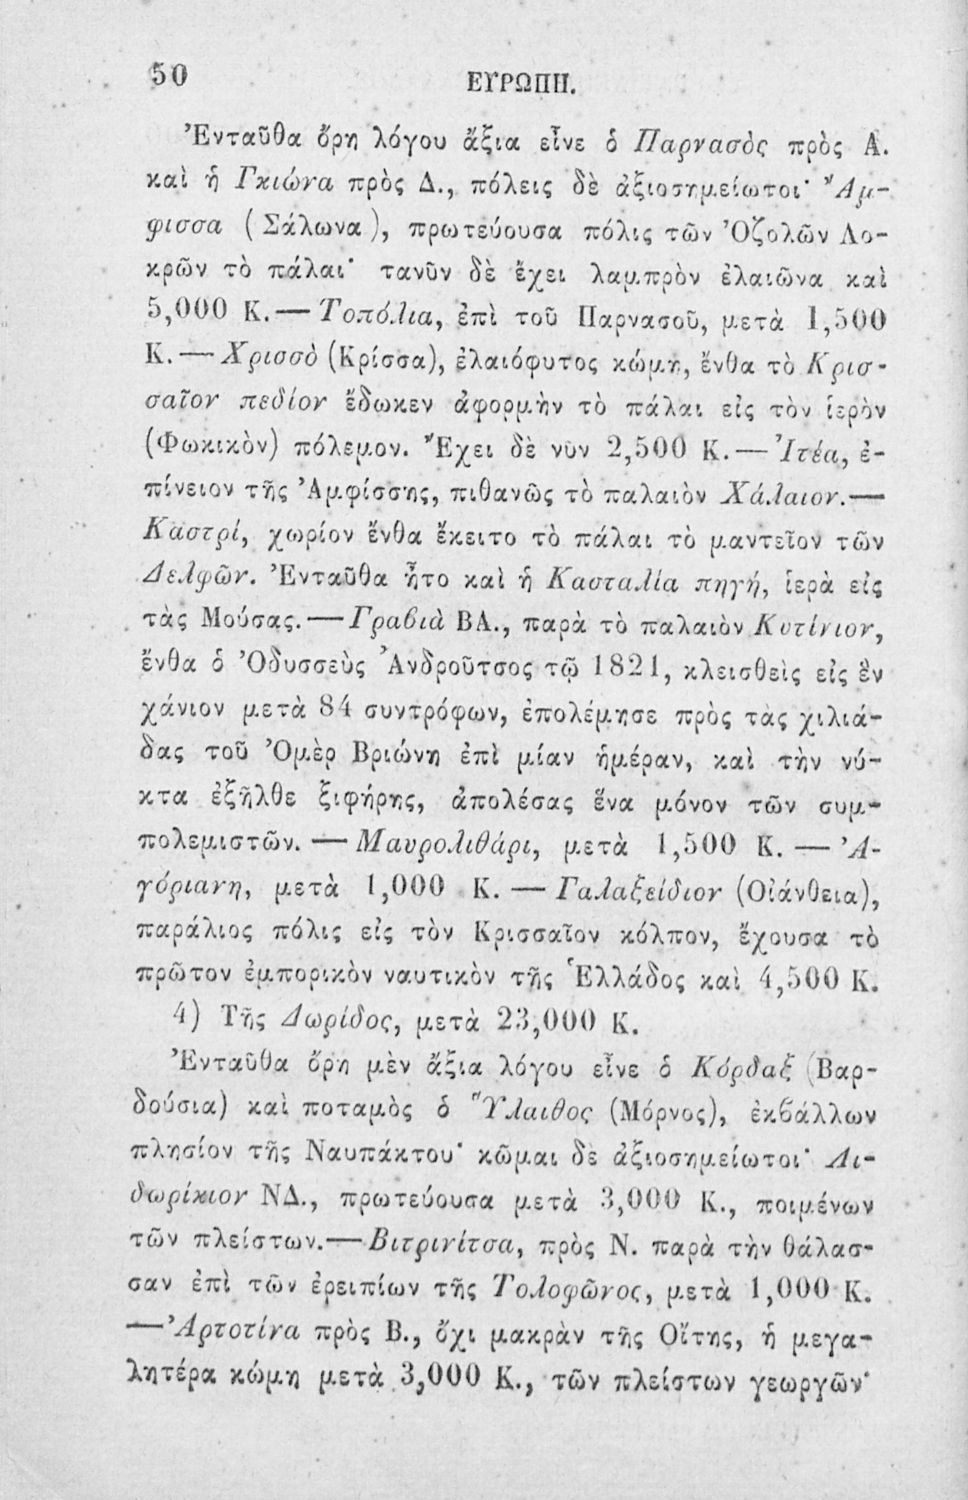 50
ΕΥΡΩΠΗ.
Ἐνταῦθα ὄρη λόγου ἄξια εἶνε ὁ Παρνασὸς πρὸς Α.
καὶ ἡ Γκιώνα πρὸς Δ., πόλεις δὲ ἀξιοσημείωτοι· Ἄμ-
φισσα (Σάλωνα), πρωτεύουσα πόλις τῶν Ὀζολῶν Λο-
κρῶν τὸ πάλαι· τανῦν δὲ ἔχει λαμπρὸν ἐλαιῶνα καὶ
5,000 Κ.— Τοπόλια, ἐπὶ τοῦ Παρνασοῦ, μετὰ 1,500
Κ.— Χρισσὸ (Κρίσσα), ἐλαιόφυτος κώμη, ἔνθα τὸ Κρισ-
σαῖον πεδίον ἔδωκεν ἀφορμὴν τὸ πάλαι εἰς τὸν ἱερὸν
(Φωκικὸν) πόλεμον. Ἔχει δὲ νῦν 2,500 Κ.— Ἰτέα, ἐ-
πίνειον τῆς Ἀμφίσσης, πιθανῶς τὸ παλαιὸν Χάλαιον.—
Καστρί, χωρίον ἔνθα ἔκειτο τὸ πάλαι τὸ μαντεῖον τῶν
Δελφῶν. Ἐνταῦθα ἦτο καὶ ἡ Κασταλία πηγή, ἱερὰ εἰς
τὰς Μούσας.— Γραβιὰ ΒΑ., παρὰ τὸ παλαιὸν Κυτίνιον,
ἔνθα ὁ Ὀδυσσεὺς Ἀνδροῦτσος τῷ 1821, κλεισθεὶς εἰς ἓν
χάνιον μετὰ 84 συντρόφων, ἐπολέμησε πρὸς τὰς χιλιά-
δας τοῦ Ὁμὲρ Βριώνη ἐπὶ μίαν ἡμέραν, καὶ τὴν νύ-
κτα ἐξῆλθε ξιφήρης, ἀπολέσας ἕνα μόνον τῶν συμ-
πολεμιστῶν. — Μαυρολιθάρι, μετὰ 1,500 Κ. — Ἀ-
γόριανη, μετὰ 1,000 Κ. — Γαλαξείδιον (Οἰάνθεια),
παράλιος πόλις εἰς τὸν Κρισσαῖον κόλπον, ἔχουσα τὸ
πρῶτον ἐμπορικὸν ναυτικὸν τῆς Ἑλλάδος καὶ 4,500 Κ.
4) Τῆς Δωρίδος, μετὰ 23,000 Κ.
Ἐνταῦθα ὄρη μὲν ἄξια λόγου εἶνε ὁ Κόρδαξ (Βαρ-
δούσια) καὶ ποταμὸς ὁ Ὕλαιθος (Μόρνος), ἐκβάλλων
πλησίον τῆς Ναυπάκτου· κῶμαι δὲ ἀξιοσημείωτοι· Λι-
δωρίκιον ΝΔ., πρωτεύουσα μετὰ 3,000 Κ., ποιμένων
τῶν πλείστων.— Βιτρινίτσα, πρὸς Ν. παρὰ τὴν θάλασ-
σαν ἐπὶ τῶν ἐρειπίων τῆς Τολοφῶνος, μετὰ 1,000 Κ.
— Ἀρτοτίνα πρὸς Β., ὄχι μακρὰν τῆς Οἴτης, ἡ μεγα-
λητέρα κώμη μετὰ 3,000 Κ., τῶν πλείστων γεωργῶν·